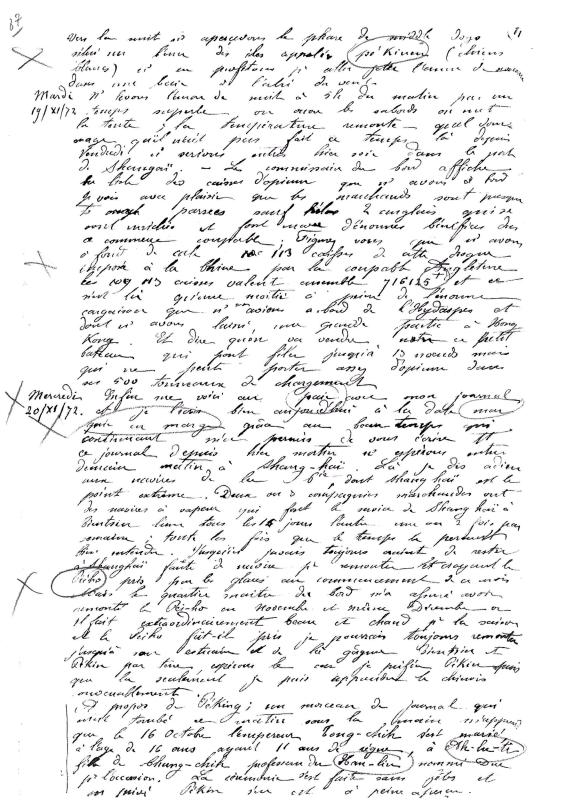 67 11
Vers la nuit ns apercevons le phare de middle dogs
situé sur l'une des îles appelées pékinen (chiens
blancs) et en profitons pr aller jeter l'ancre de nouveau
dans une baie à l'abri du vent.
Mardi Ns levons l'ancre de nuit à 5h du matin par un
19/XI/72 temps superbe on ouvre les sabords on met
la tente ; la température remonte quel dom
mage qu'il n'ait pas fait ce temps là depuis
Vendredi ns serions entrés hier soir dans le port
de Shangaï. — Le commissaire du bord affiche
la liste des caisses d'opium que ns avons à bord
je vois avec plaisir que les marchands sont presque
ts parsees sauf 2 anglais qui se
sont enrichis et font d'énormes bénéfices dans
ce commerce coupable ; Figurez vous que ns avons
à fond de cale 113 caisses de cette drogue
imposée à la Chine par la coupable Angleterre
Ces 113 caisses valent ensemble 716125 et ce
n'est là qu'une moitié à peine de l'énorme
cargaison que ns avions à bord de l'Hydaspes et
dont ns avons laissé une grande partie à Hong
Kong. Et dire qu'on va vendre ce petit
bateau qui peut filer jusqu'à 13 nœuds mais
qui ne peut porter assez d'opium dans
ses 500 tonneaux de chargement
Mercredi Enfin me voici au pair avec mon journal
20/XI/72. et je écris bien aujourd'hui à la date mar
quée en marge grâce au beau temps qui
continuant m'a permis de vous écrire tt
ce journal depuis hier matin ns espérons entrer
demain matin à Shang-haï. Là je dis adieu
aux navires de la Cie dont shang haï est le
point extrême. Deux ou 3 compagnies marchandes ont
des navires à vapeur qui font le service de Shang haï à
Tientsin l'un tous les 15 jours l'autre une ou 2 fois par
semaine ; toutes les fois que le temps le permet
bien entendu. Jusqu'ici j'avais toujours craint de rester
à Shanghaï faute de navire pr remonter et croyant le
Peiho pris par les glaces au commencement de ce mois
Mais le quartier maître du bord m'a assuré avoir
remonté le Pei-ho en Novembre et même Décembre or
il fait extraordinairement beau et chaud pr la saison
et le Peiho fut-il pris je pourrais toujours remonter
jusqu'à son estuaire et de là gagner Tientsin et
Pékin par terre, espérons le car je préfère Pékin puis
que là seulement je puis apprendre le chinois
convenablement.
A propos de Péking ; un morceau de journal qui
m'est tombé ce matin sous la main m'apprend
que le 16 Octobre l'empereur Tong-chih s'est marié
à l'âge de 16 ans ayant 11 ans de règne, à Ah-lu-te
fille de Chung-chih professeur du Han-lin nommé Duc
pr l'occasion. La cérémonie s'est faite sans fêtes et
en privé Pékin s'en est à peine aperçu.